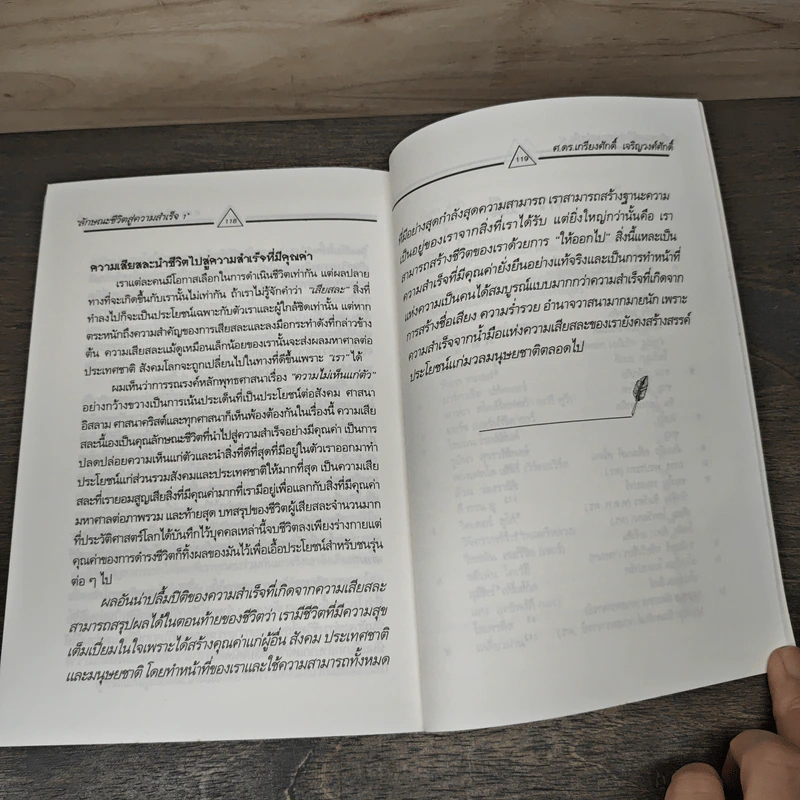 "ลักษณะชีวิตสู่ความสำเร็จ 1"
118
ความเสียสละนำชีวิตไปสู่ความสำเร็จที่มีคุณค่า
เราแต่ละคนมีโอกาสเลือกในการดำเนินชีวิตเท่ากัน แต่ผลปลาย
ทางที่จะเกิดขึ้นกับเรานั้นไม่เท่ากัน ถ้าเราไม่รู้จักคำว่า "เสียสละ" สิ่งที่
ทำลงไปก็จะเป็นประโยชน์เฉพาะกับตัวเราและผู้ใกล้ชิดเท่านั้น แต่หาก
ตระหนักถึงความสำคัญของการเสียสละและลงมือกระทำดังที่กล่าวข้าง
ต้น ความเสียสละแม้ดูเหมือนเล็กน้อยของเรานั้นจะส่งผลมหาศาลต่อ
ประเทศชาติ สังคมโลกจะถูกเปลี่ยนไปในทางที่ดีขึ้นเพราะ "เรา" ได้
ผมเห็นว่าการรณรงค์หลักพุทธศาสนาเรื่อง "ความไม่เห็นแก่ตัว"
อย่างกว้างขวางเป็นการเน้นประเด็นที่เป็นประโยชน์ต่อสังคม ศาสนา
อิสลาม ศาสนาคริสต์และทุกศาสนาก็เห็นพ้องต้องกันในเรื่องนี้ ความเสีย
สละนี้เองเป็นคุณลักษณะชีวิตที่นำไปสู่ความสำเร็จอย่างมีคุณค่า เป็นการ
ปลดปล่อยความเห็นแก่ตัวและนำสิ่งที่ดีที่สุดที่มีอยู่ในตัวเราออกมาทำ
ประโยชน์แก่ส่วนรวมสังคมและประเทศชาติให้มากที่สุด เป็นความเสีย
สละที่เรายอมสูญเสียสิ่งที่มีคุณค่ามากที่เรามีอยู่เพื่อแลกกับสิ่งที่มีคุณค่า
มหาศาลต่อภาพรวม และท้ายสุด บทสรุปของชีวิตผู้เสียสละจำนวนมาก
ที่ประวัติศาสตร์โลกได้บันทึกไว้บุคคลเหล่านี้จบชีวิตลงเพียงร่างกายแต่
คุณค่าของการดำรงชีวิตก็ทิ้งผลของมันไว้เพื่อเอื้อประโยชน์สำหรับชนรุ่น
ต่อ ๆ ไป
ผลอันน่าปลื้มปิติของความสำเร็จที่เกิดจากความเสียสละ
สามารถสรุปผลได้ในตอนท้ายของชีวิตว่า เรามีชีวิตที่มีความสุข
เต็มเปี่ยมในใจเพราะได้สร้างคุณค่าแก่ผู้อื่น สังคม ประเทศชาติ
และมนุษยชาติ โดยทำหน้าที่ของเราและใช้ความสามารถทั้งหมด
119
ศ.ดร.เกรียงศักดิ์ เจริญวงศ์ศักดิ์
ที่มีอย่างสุดกำลังสุดความสามารถ เราสามารถสร้างฐานะความ
เป็นอยู่ของเราจากสิ่งที่เราได้รับ แต่ยิ่งใหญ่กว่านั้นคือ เรา
สามารถสร้างชีวิตของเราด้วยการ "ให้ออกไป" สิ่งนี้แหละเป็น
ความสำเร็จที่มีคุณค่ายั่งยืนอย่างแท้จริงและเป็นการทำหน้าที่
แห่งความเป็นคนได้สมบูรณ์แบบมากกว่าความสำเร็จที่เกิดจาก
การสร้างชื่อเสียง ความร่ำรวย อำนาจวาสนามากมายนัก เพราะ
ความสำเร็จจากน้ำมือแห่งความเสียสละของเรายังคงสร้างสรรค์
ประโยชน์แก่มวลมนุษยชาติตลอดไป